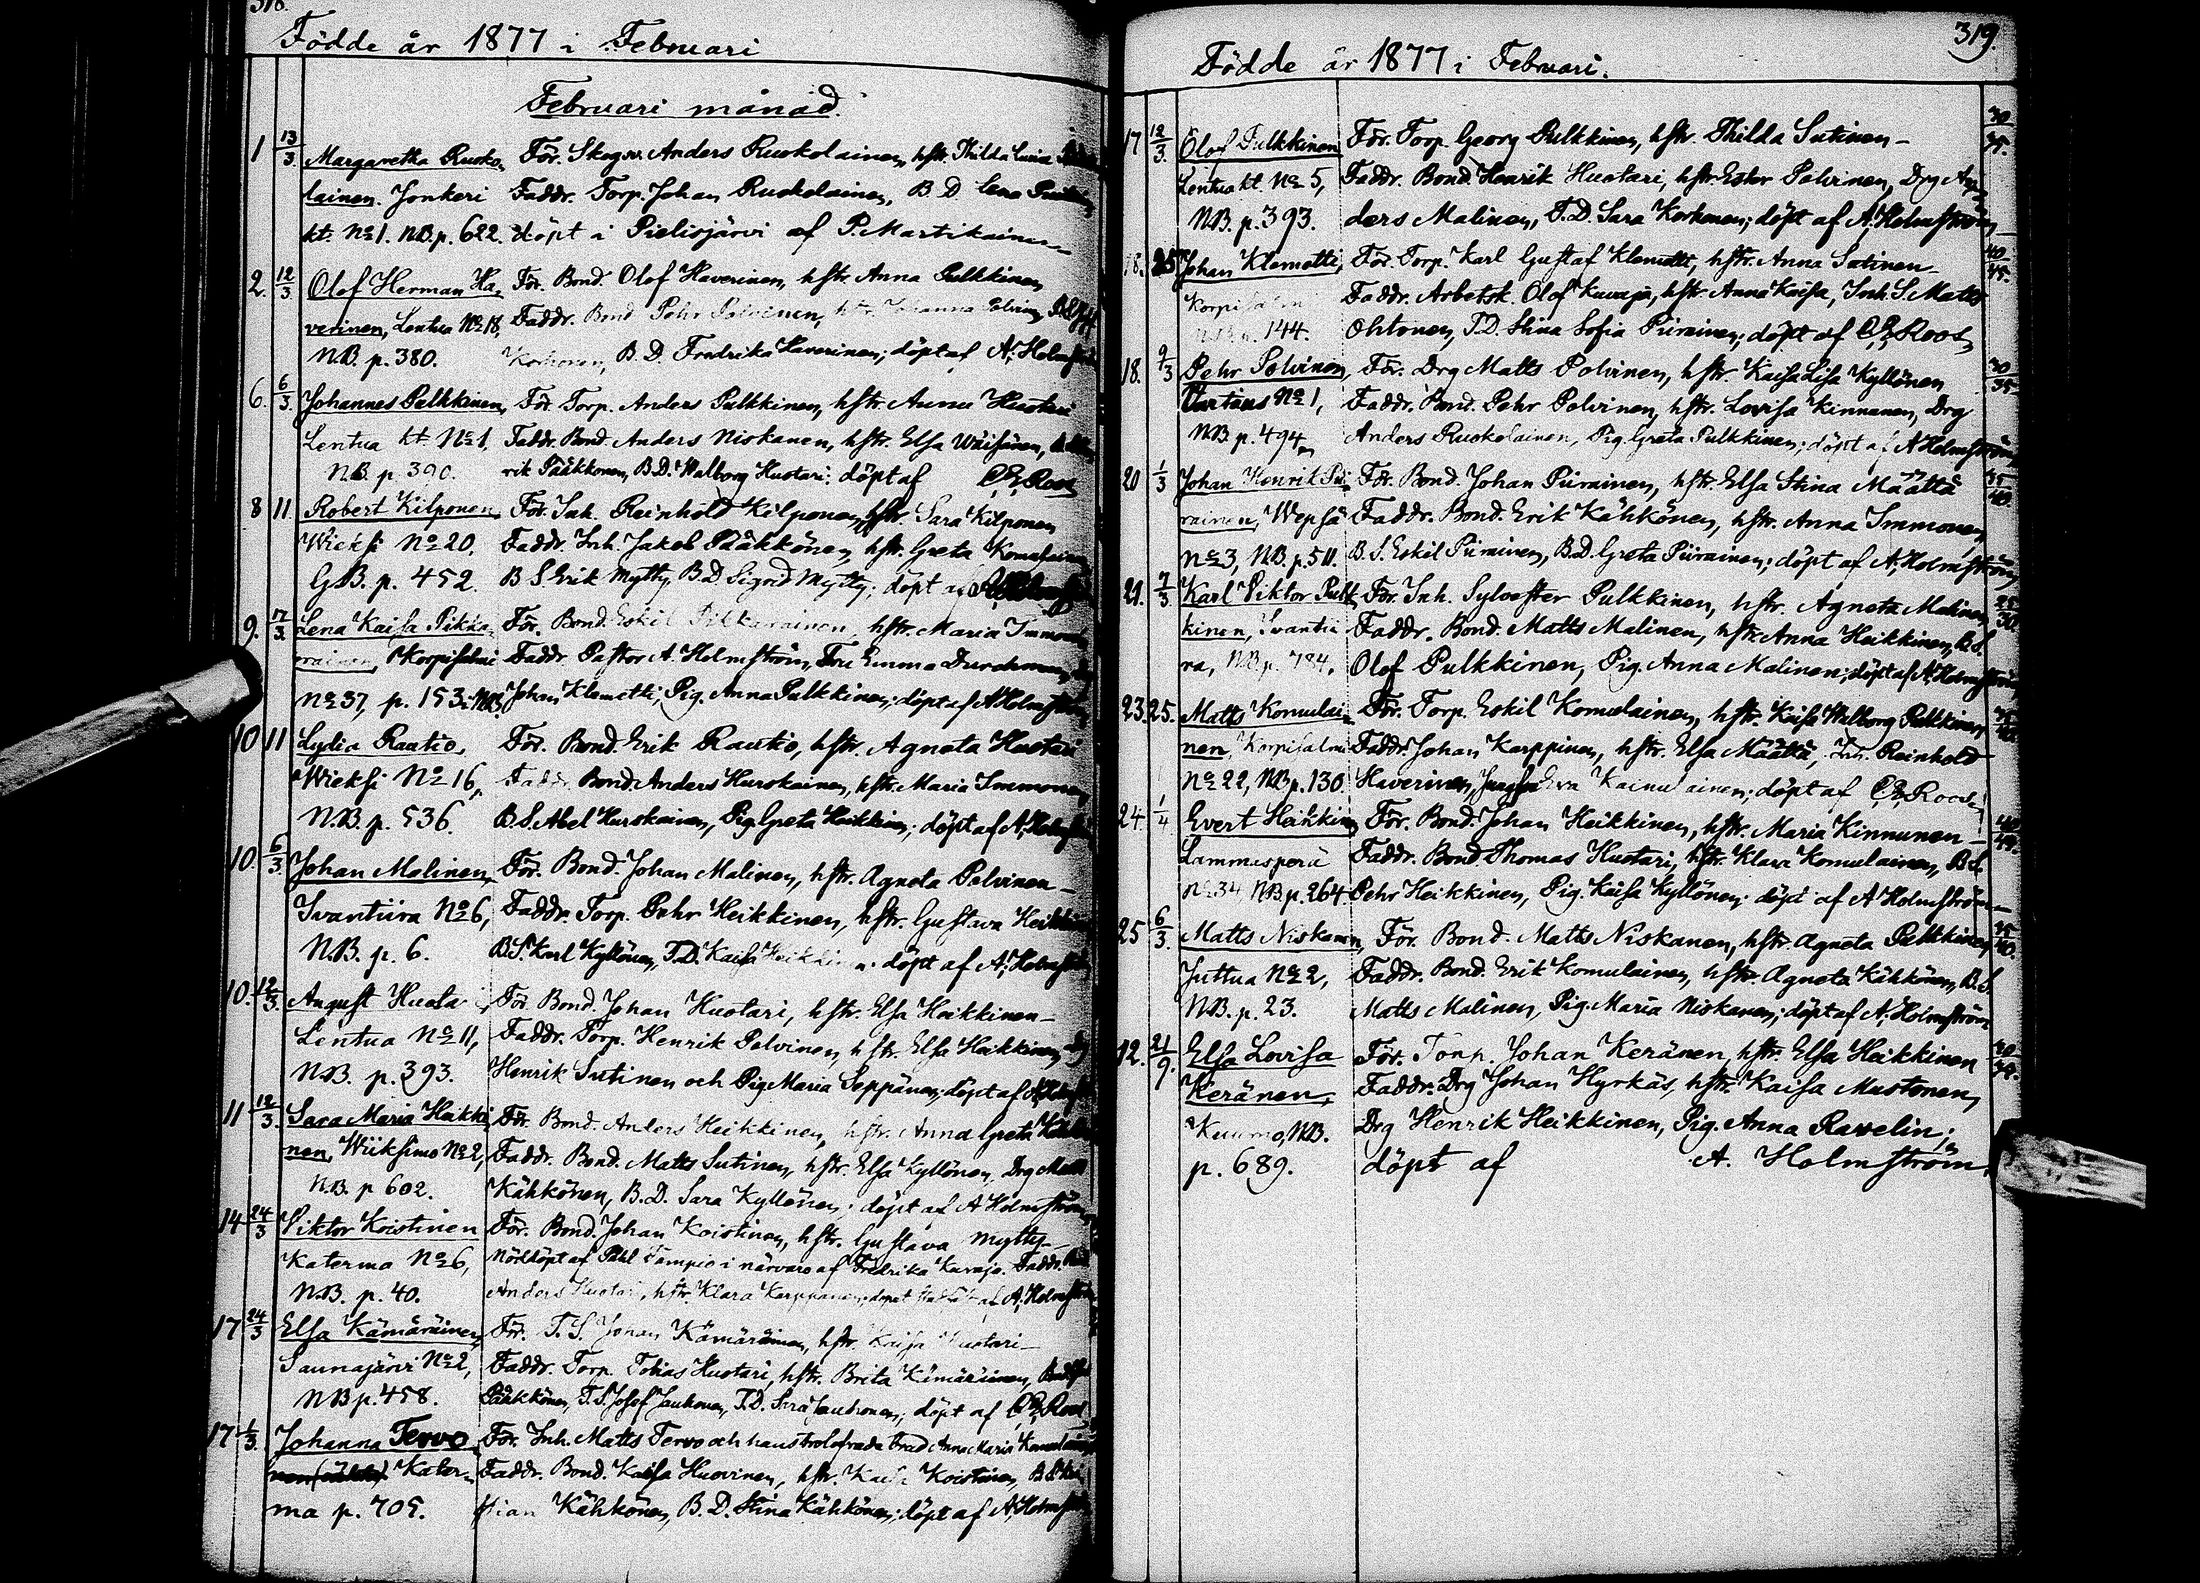 318.
Födde år 1877 i Februari
Februari månad.
1 13/3 Margaretha Ruoko- För. Skogsv. Anders Ruokolainen, hstr. Thilda Lucina
lainen. Jonkeri Faddr. Torp. Johan Ruokolainen, B.D. Lena
kt. No 1. NB. p. 622. döpt i Pielisjärvi af P. Martikainen
2. 12/3 Olof Herman Ha- För. Bond. Olof Haverinen, hstr. Anna Pulkkinen
verinen, Lentua No 18, Faddr. Bond. Pehr Polvinen, hstr. Johanna Polvinen,
NB. p. 380. Korhonen, B.D. Fredrika Haverinen; döpt af A. Holmström
6. 6/3 Johannes Pulkkinen, För. Torp. Anders Pulkkinen, hstr. Anna Huotari
Lentua kt. No 1. Faddr. Bond. Anders Niskanen, hstr. Elsa Wäisänen,
NB. p. 390. rik Pääkkönen, B.D. Walborg Huotari; döpt af C.E. Roos
8 11. Robert Kilponen För. Inh. Reinhold Kilponen, hstr. Sara Kilponen
Wieksi No 20. Faddr. Inh. Jakob Pääkkönen, hstr. Greta Komulainen
GB. p. 452. B.S. Erik Mytty, B.D. Sigrid Mytty; döpt af
9. 7/3 Lena Kaisa Pikka- För. Bond. Eskil Pikkarainen, hstr. Maria Immonen
rainen, Korpisalmi Faddr. Pastor A. Holmström, Fru Emma Durchman,
No 37, p. 153. NB. Johan Klemetti, Pig. Anna Pulkkinen; döpt af A. Holmström
10 11 Lydia Rautio, För. Bond. Erik Rautio, hstr. Agneta Huotari
Wieksi No 16, Faddr. Bond. Anders Hurskainen, hstr. Maria Immonen
N.B. p. 536. B.S. Abel Hurskainen, Pig. Greta Heikkinen; döpt af A. Holmström
10. 6/3 Johan Malinen, För. Bond. Johan Malinen, hstr. Agneta Polvinen
Iivantiira No 6, Faddr. Torp. Pehr Heikkinen, hstr. Gustava Heikkinen
N.B. p. 6. B.S. Karl Kyllönen, T.D. Kaisa Heikkinen; döpt af A. Holmström
10. 12/3. August Huotari, För. Bond. Johan Huotari, hstr. Elsa Heikkinen
Lentua No 11, Faddr. Torp. Henrik Polvinen, hstr. Elsa Heikkinen,
N.B. p. 393. Henrik Sutinen och Pig. Maria Seppänen; döpt af A. Holmström
11 12/3. Sara Maria Heikki- För. Bond. Anders Heikkinen, hstr. Anna Greta
nen, Wiiksimo No 2, Faddr. Bond. Matts Sutinen, hstr. Elsa Kyllönen, Drg Matts
N.B. p 602. Kähkönen, B.D. Sara Kyllönen; döpt af A Holmström
14 24/3 Viktor Koistinen För. Bond. Johan Koistinen, hstr. Gustava Mytty
Katerma No 6, Nöddöpt af Påhl Tampio i närvaro af Fredrika Kuvaja. Faddr.
N.B. p. 40. Anders Huotari, hstr. Klara Karppanen; döpet af A. Holmström
17 24/3 Elsa Kämäräinen, För. T.S. Johan Kämäräinen, hstr. Kaisa Huotari
Saunajärvi No 2, Faddr. Torp. Tobias Huotari, hstr. Brita Kämäräinen,
NB p. 458. Pääkkönen, T.S. Josef Jauhonen, T.D. Sara Jauhonen; döpt af C.E. Roos
17 1/3. Johanna Tervo För. Inh. Matts Tervo och hans trolofvade brud Anna Maria Komulainen
Kater- Faddr. Bond. Kaisa Huovinen, hstr. Kaisa Koistinen, B.S. Kri-
ma p. 705. stian Kähkönen, B.D. Stina Kähkönen; döpt af A. Holmström
319.
Födde år 1877 i Februari.
17 12/3. Olof Pulkkinen För. Torp. Georg Pulkkinen, hstr. Thilda Sutinen 30/35.
Lentua kt. No 5, Faddr. Bond. Henrik Huotari, hstr. Ester Polvinen, Drg An-
NB. p. 393. ders Malinen, T.D. Sara Korhonen; döpt af A. Holmström
18. 25 Johan Klemetti, För. Torp. Karl Gustaf Klemetti, hstr. Anna Sutinen 40/45.
Korpisalmi Faddr. Arbetsk. Olof Kuvaja, hstr. Anna Kaisa, Inh. S. Matts
NB. p. 144. Ohtonen, T.D. Stina Sofia Piirainen; döpt af C.E. Roos
18. 9/3 Pehr Polvinen, För. Drg Matts Polvinen, hstr. Kaisa Lisa Kyllönen 30/35
Vartius No 1, Faddr. Bond. Pehr Polvinen, hstr. Lovisa Kinnunen, Drg
NB. p. 494. Anders Ruokolainen, Pig. Greta Pulkkinen; döpt af A Holmström
20 1/3 Johan Henrik Pii- För. Bond. Johan Piirainen, hstr. Elsa Stina Määttä 35/40.
rainen, Wepsä Faddr. Bond. Erik Kähkönen, hstr. Anna Immonen,
No 3, NB. p. 511. B.S. Eskil Piirainen, B.D. Greta Piirainen; döpt af A. Holmström
21. 7/3 Karl Viktor Pulk- För. Inh. Sylvester Pulkkinen, hstr. Agneta Malinen 25/30.
kinen, Ivantii- Faddr. Bond. Matts Malinen, hstr. Anna Heikkinen, B.S.
ra, NB p. 784. Olof Pulkkinen, Pig. Anna Malinen; döpt af A. Holmström
23. 25. Matts Komulai- För. Torp. Eskil Komulainen, hstr. Kaisa Walborg Pulkkinen,
nen, Korpisalmi Faddr. Johan Karppinen, hstr. Elsa Määttä, Inh. Reinhold
No 22, NB p. 130. Haverinen, Jungfru Eva Kainulainen; döpt af C.E. Roos
24. 1/4 Evert Heikkinen För. Bond. Johan Heikkinen, hstr. Maria Kinnunen 40/45.
Lammasperä Faddr. Bond. Thomas Huotari, hstr. Klara Komulainen, B.S.
No 34, NB p. 264. Pehr Heikkinen, Pig. Kaisa Kyllönen; döpt af A Holmström
25 6/3. Matts Niskanen, För. Bond. Matts Niskanen, hstr. Agneta Pulkkinen, 35/40.
Juttua No 2, Faddr. Bond. Erik Komulainen, hstr. Agneta Kähkönen, B.S.
NB. p. 23. Matts Malinen, Pig. Maria Niskanen; döpt af A. Holmström
12. 21/9. Elsa Lovisa För. Torp. Johan Keränen, hstr. Elsa Heikkinen
Keränen, Faddr. Drg Johan Hyrkäs, hstr. Kaisa Mustonen,
Kuumo, NB. Drg Henrik Heikkinen, Pig. Anna Ravelin;
p. 689. döpt af A. Holmström.